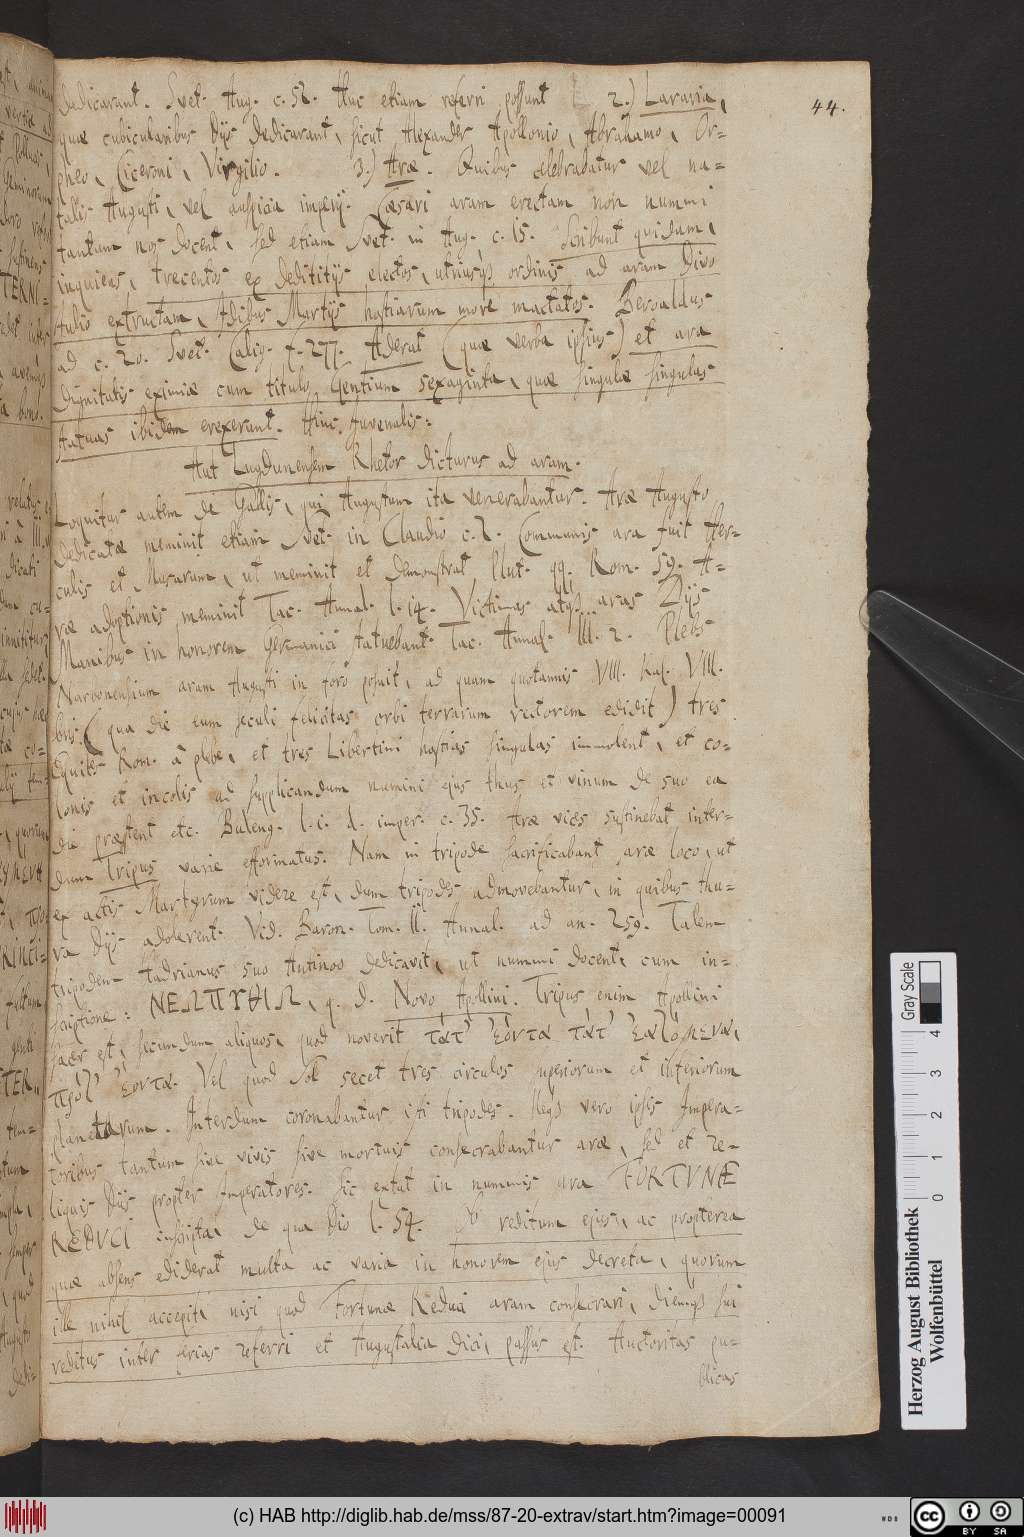 44.
dedicarant. Svet. Aug. c. 52. Huc etiam referri possunt 2.) Lararia,
quae cubicularibus Dijs dedicarant, sicut Alexander Apollonio, Abrahamo, Or=
pheo, Ciceroni, Virgilio. 3.) Aræ. Quibus celebrabatur vel na=
talis Augusti, vel auspicia imperij. Cæsari aram erectam non nummi
tantum nos docent, sed etiam Svet. in Aug. c. 15. Scribunt quidam,
inquiens, trecentos ex dedititijs electos, utriusqȝ ordinis ad aram Divo
Iulio extructam, Idibus Martijs hostiarum more mactatos. Beroaldus
ad c. 20. Svet. Calig. f. 277. Aderat (quæ verba ipsius) et ara
dignitatis eximiæ cum titulo Gentium sexaginta, quæ singulæ singulas
statuas ibidem erexerunt. Hinc Juvenalis:
Aut Lugdunensem Rhetor dicturus ad aram.
Loquitur autem de Gallis, qui Augustum ita venerabantur. Aræ Augusto
dedicatæ meminit etiam Svet. in Claudio c. 2. Communis ara fuit Her=
culis et Musarum, ut meminit et demonstrat Plut. qq. Rom. 59. A=
ræ adoptionis meminit Tac. Annal. l. 14. Victimas atqȝ aras Dijs
Manibus in honorem Germanici statuebant. Tac. Annal. III. 2. Plebs
Narbonensium aram Augusti in foro posuit, ad quam quotannis VIII. Kal. VIII.
bris. (qua die eum seculi felicitas orbi terrarum rectorem edidit) tres
Equites Rom. à plebe, et tres Libertini hostias singulas immolent, et co=
lonis et incolis ad supplicandum numini ejus thus et vinum de suo ea
die præstent etc. Buleng. l. c. d. imper. c. 35. Aræ vices sustinebat inter=
dum Tripus varie efformatus. Nam in tripode sacrificabant aræ loco, ut
ex actis Martyrum videre est, dum tripodes admovebantur, in quibus thu=
ra Dijs adolerent. Vid. Baron. Tom. II. Annal. ad an. 259. Talem
tripodem Hadrianus suo Antinoo dedicavit, ut nummi docent, cum in=
scriptione: ΝΕΩΠΥΘΙΩ, q. d. Novo Apollini. Tripus enim Apollini
sacer est, secundum aliquos, quod noverit τάτ' ἐόντα τάτ' ἐσσόμενα,
πρό τ' ἐόντα. Vel quod Sol secet tres circulos superiorum et inferiorum
planetarum. Interdum coronabantur isti tripodes. Neqȝ vero ipsis Impera=
toribus tantum sive vivis sive mortuis consecrabantur aræ, sed et re=
liquis Dijs propter Imperatores. Sic extat in nummis ara FORTVNÆ
REDVCI inscripta, de qua Dio l. 54. Ob reditum ejus, ac propterea
quæ absens ediderat multa ac varia in honorem ejus decreta, quorum
ille nihil accepit, nisi quod Fortunæ Reduci aram consecrari, diemqȝ sui
reditus inter ferias referri et Augustalia dici, passus est. Auctoritas pu=
blicas
Gray Scale
0 1 2 3 4
Herzog August Bibliothek
Wolfenbüttel
(c) HAB http://diglib.hab.de/mss/87-20-extrav/start.htm?image=00091
cc BY SA